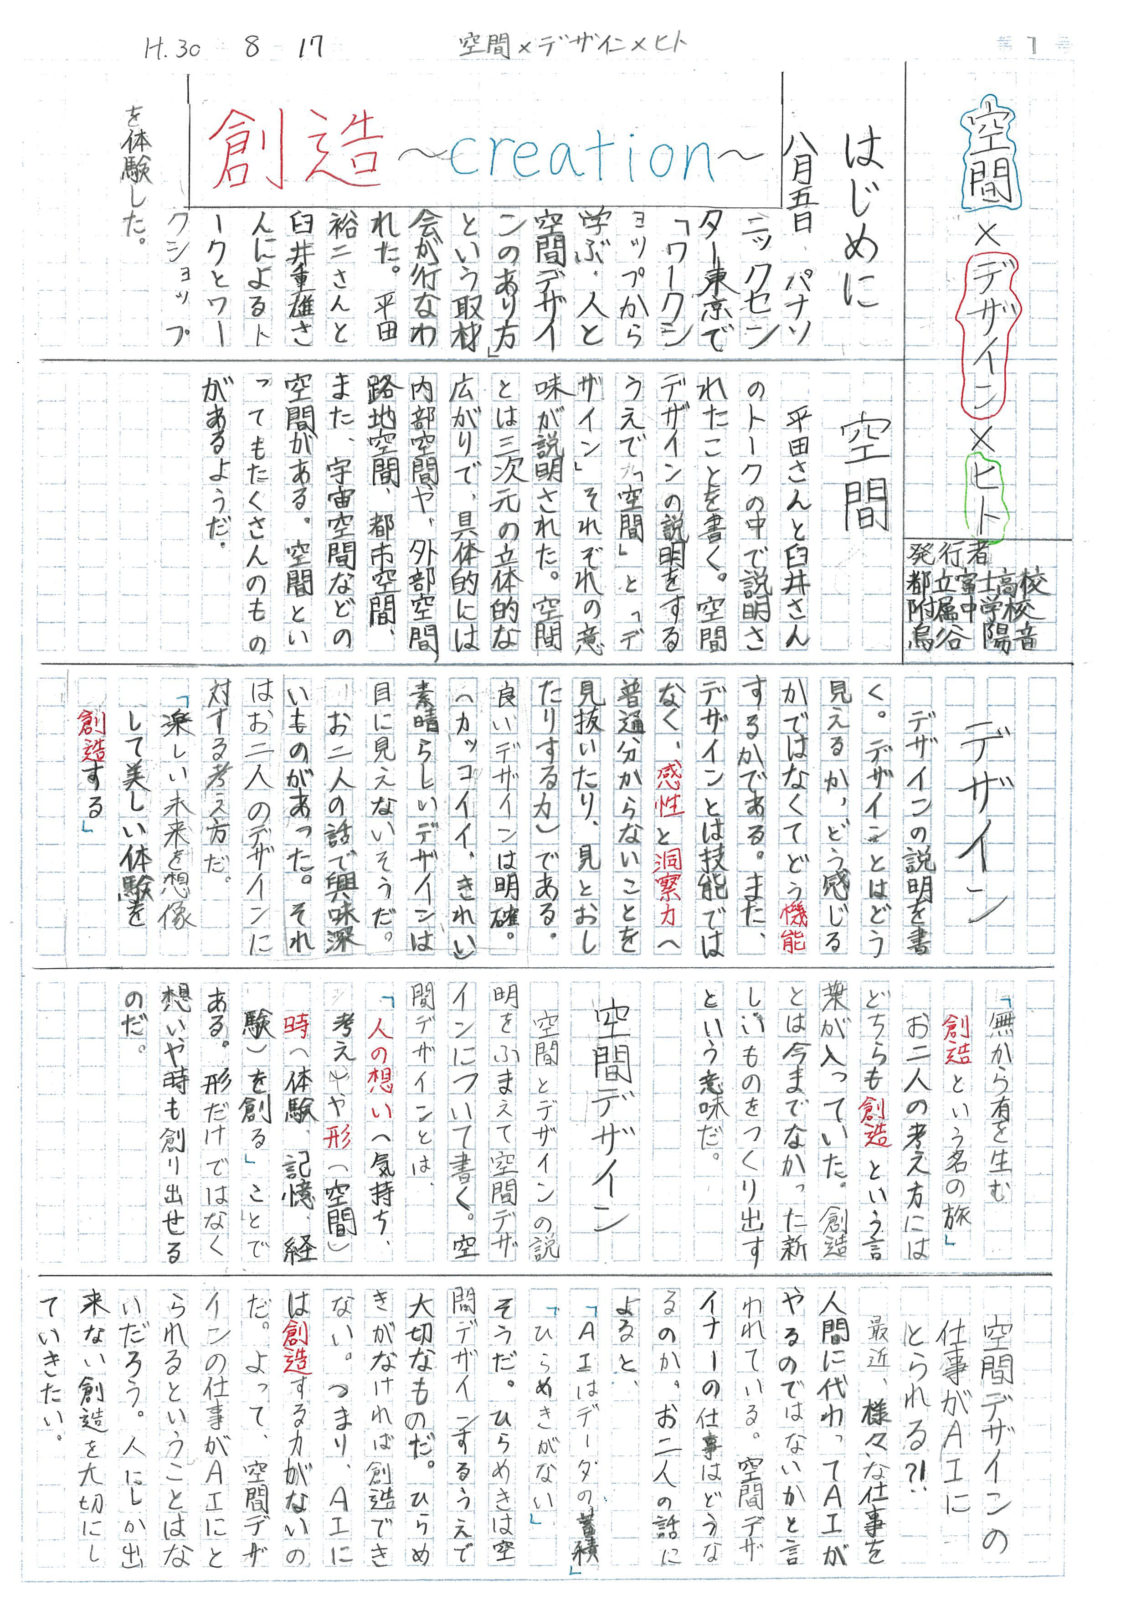 H.30 8 17 空間×デザイン×ヒト
第1号
空間×デザイン×ヒト
発行者
都立富士高校
附属中学校
鳥谷陽音
創造～creation～
はじめに
八月五日、パナソ
ニックセン
ター東京で
「ワークシ
ョップから
学ぶ・人と
空間デザイ
ンのあり方」
という取材
会が行なわ
れた。平田
裕二さんと
臼井重雄さ
んによるト
ークとワー
クショップ
を体験した。
空間
平田さんと臼井さん
のトークの中で説明さ
れたことを書く。空間
デザインの説明をする
うえで「空間」と「デ
ザイン」それぞれの意
味が説明された。空間
とは三次元の立体的な
広がりで、具体的には
内部空間や、外部空間
路地空間、都市空間、
また、宇宙空間などの
空間がある。空間とい
ってもたくさんのもの
があるようだ。
デザイン
デザインの説明を書
く。デザインとはどう
見えるか、どう感じる
かではなくてどう機能
するかである。また、
デザインとは技能では
なく、感性と洞察力（
普通分からないことを
見抜いたり、見とおし
たりする力）である。
良いデザインは明確。
（カッコイイ、きれい）
素晴らしいデザインは
目に見えないそうだ。
お二人の話で興味深
いものがあった。それ
はお二人のデザインに
対する考え方だ。
「楽しい未来を想像
して美しい体験を
創造する」
「無から有を生む
創造という名の旅」
お二人の考え方には
どちらも創造という言
葉が入っていた。創造
とは今までなかった新
しいものをつくり出す
という意味だ。
空間デザイン
空間とデザインの説
明をふまえて空間デザ
インについて書く。空
間デザインとは、
「人の想い（気持ち、
考え）や形（空間）
時（体験、記憶、経
験）を創る」ことで
ある。形だけではなく
想いや時も創り出せる
のだ。
空間デザインの
仕事がAIに
とられる？！
最近、様々な仕事を
人間に代わってAIが
やるのではないかと言
われている。空間デザ
イナーの仕事はどうな
るのか。お二人の話に
よると、
「AIはデータの蓄積」
「ひらめきがない」
そうだ。ひらめきは空
間デザインするうえで
大切なものだ。ひらめ
きがなければ創造でき
ない。つまり、AIに
は創造する力がないの
だ。よって、空間デザ
インの仕事がAIにと
られるということはな
いだろう。人にしか出
来ない創造を大切にし
ていきたい。